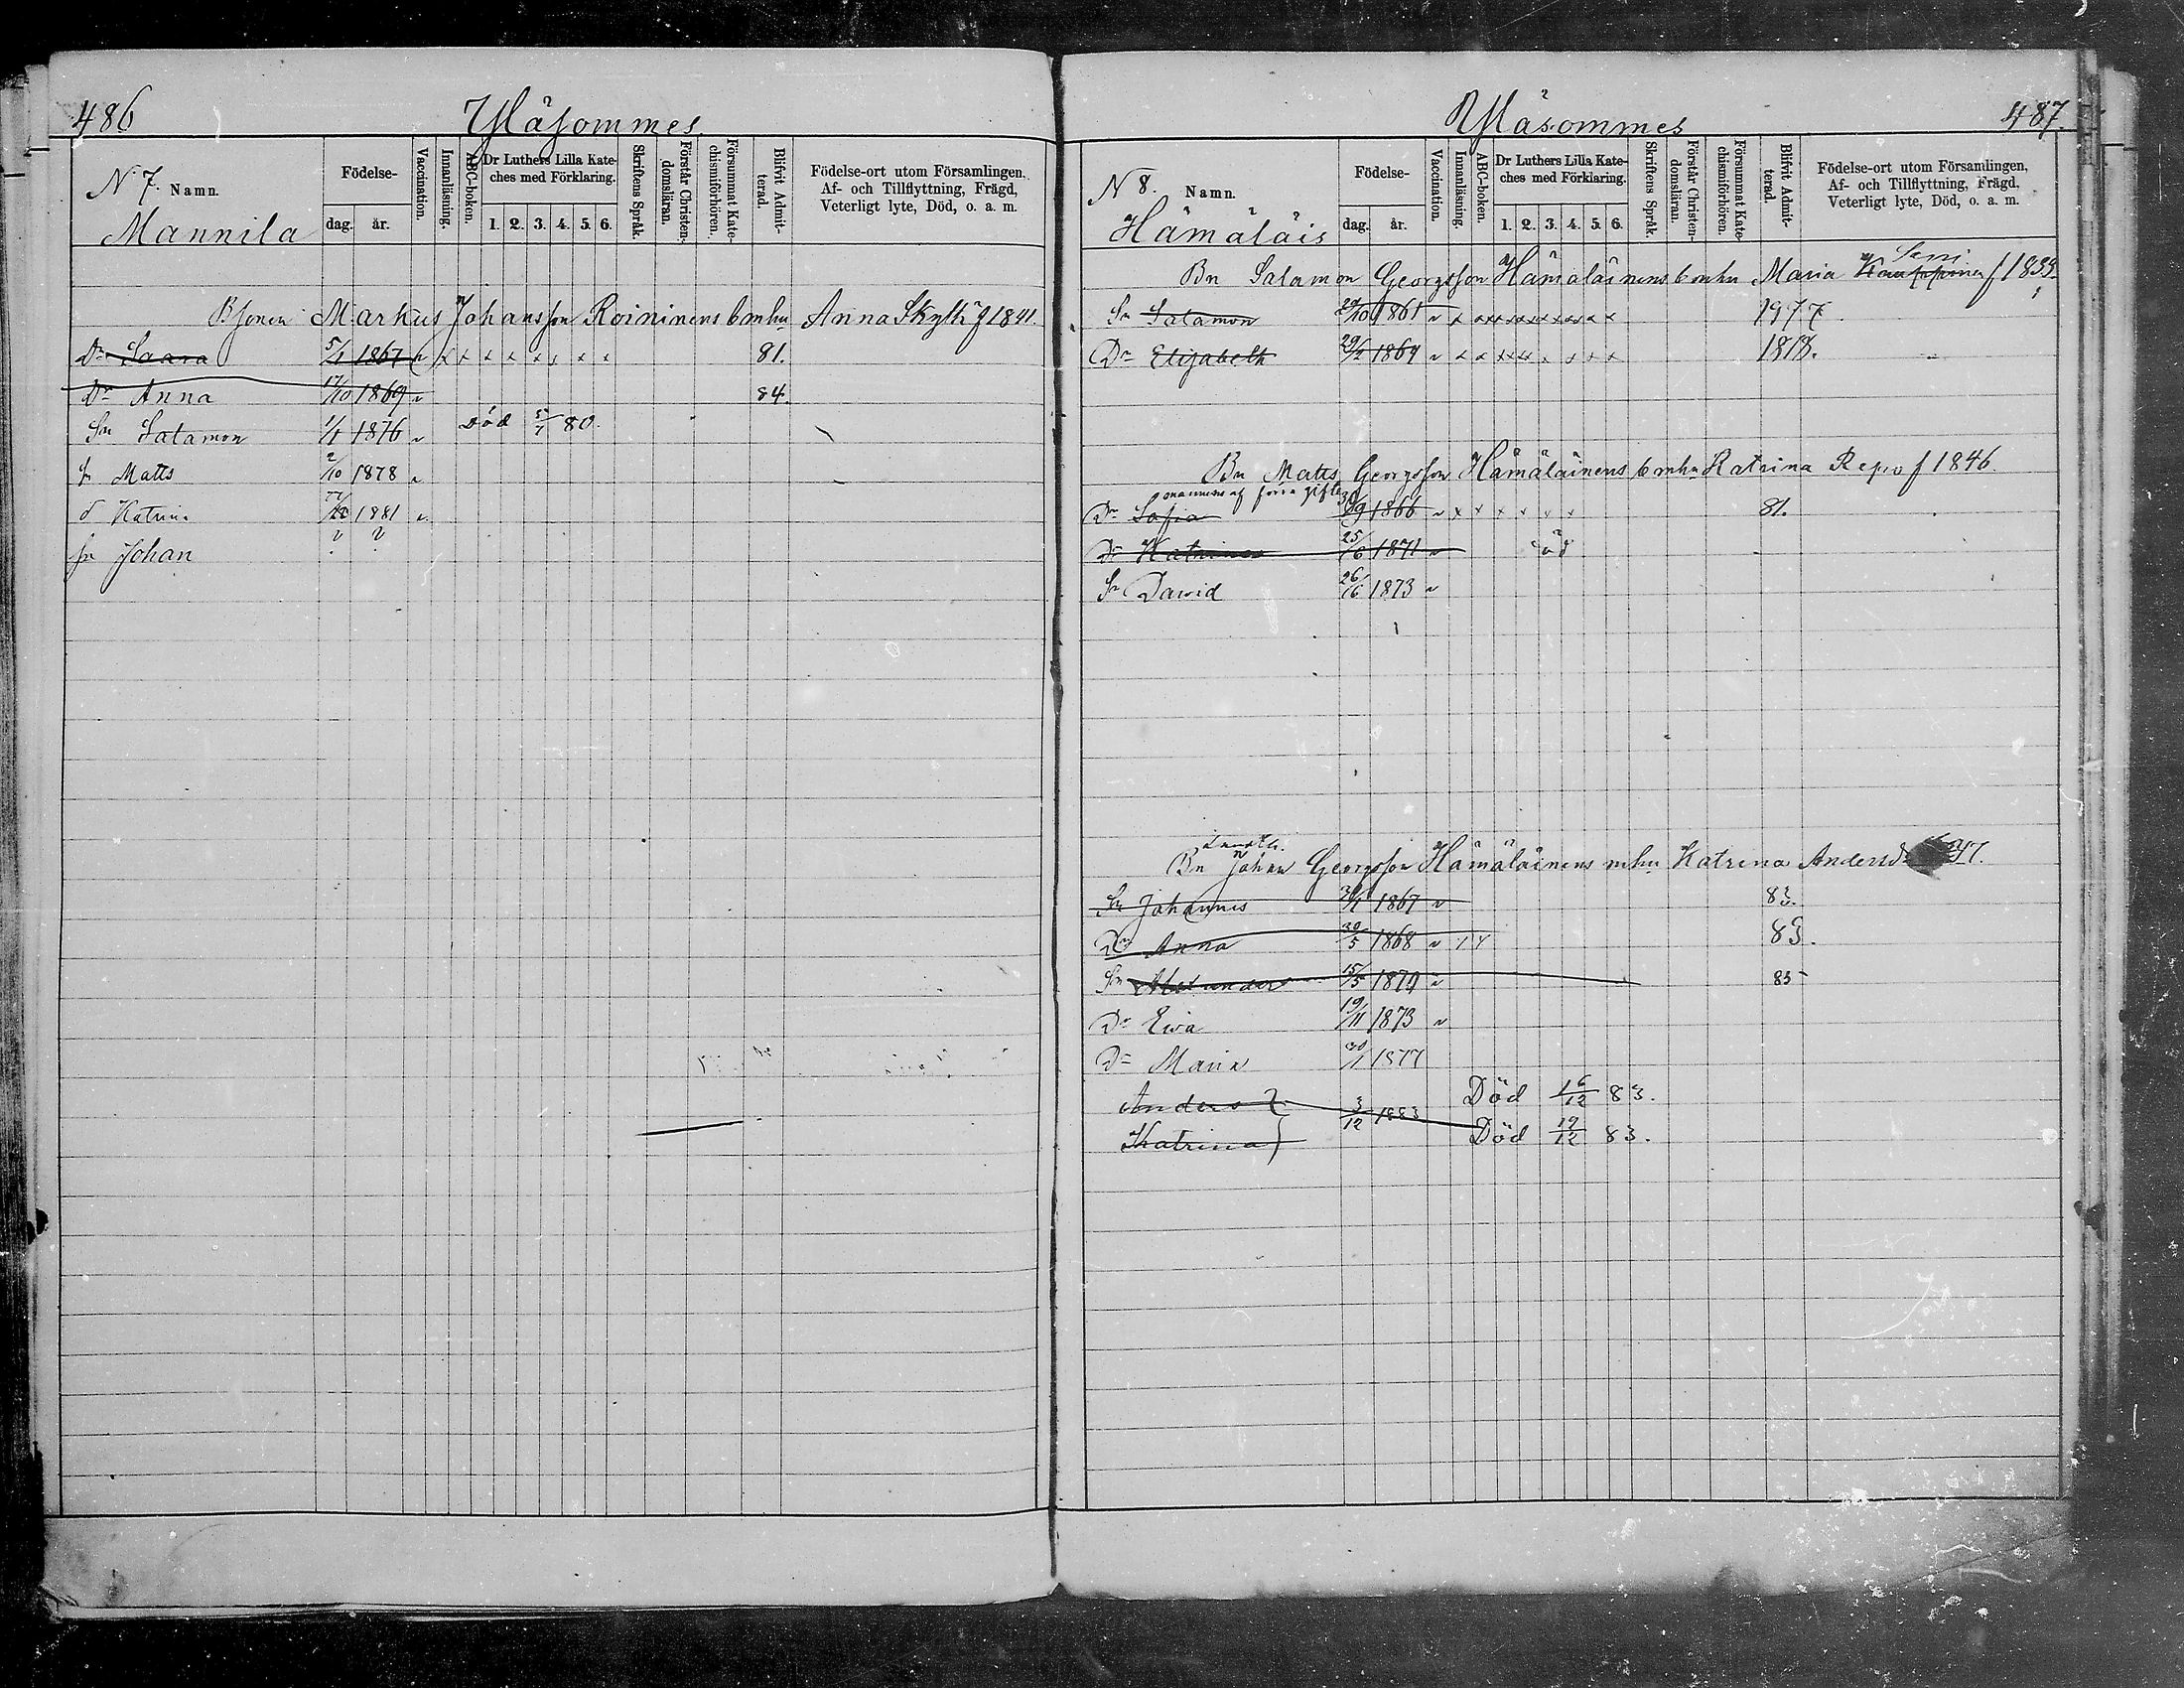 486
Yläsommes
N 7. Namn.
Mannila
Födelse-
dag. år.
Vaccination.
Innanläsning.
ABC-boken.
Dr Luthers Lilla Kate-
ches med Förklaring.
1. 2. 3. 4. 5. 6.
Skriftens Språk.
Förstår Christen-
domsläran.
Försummat Kate-
chismiförhören.
Blifvit Admit-
terad.
Födelse-ort utom Församlingen,
Af- och Tillflyttning, Frägd,
Veterligt lyte, Död, o. a. m.
Markus Johansson Roininens bmhu Anna Skyttä f 1841.
Dr Saara 5/1 1867 v x x x x x x x x 81.
Dr Anna 17/10 1869 v 84.
Sn Salamon 1/1 1876 v Död 5/7 80.
s Matts 2/10 1878 v
d Katrina 1881 v
sn Johan
Yläsommes
487.
N 8. Namn.
Hämäläis
Födelse-
dag. år.
Vaccination.
Innanläsning.
ABC-boken.
Dr Luthers Lilla Kate-
ches med Förklaring.
1. 2. 3. 4. 5. 6.
Skriftens Språk.
Förstår Christen-
domsläran.
Försummat Kate-
chismiförhören.
Blifvit Admit-
terad.
Födelse-ort utom Församlingen,
Af- och Tillflyttning, Frägd,
Veterligt lyte, Död, o. a. m.
Bn Salamon Georgsson Hämäläinens bmhu Maria f 1839
Sn Salamon 29/10 1861 v 1977.
Dr Elisabeth 29/2 1864 v 1878.
Bn Matts Georgsson Hämäläinens bmhu Katrina Repo f 1846
Dr Sofia 30/9 1866 v x x x x x x 81.
Dr Katrina 25/6 1871 v död
Sn David 26/6 1873 v
Bn Johan Georgsson Hämäläinens mhu Katrina Andersdr 47.
Sn Johannes 1867 v 83.
Dr Anna 30/5 1868 v 83.
Sn Alexander 15/5 1870 v 85
Dr Eva 19/11 1873 v
Dr Maria 30/1 1877
Anders } 3/12 1883 Död 16/12 83.
Katrina } Död 19/12 83.